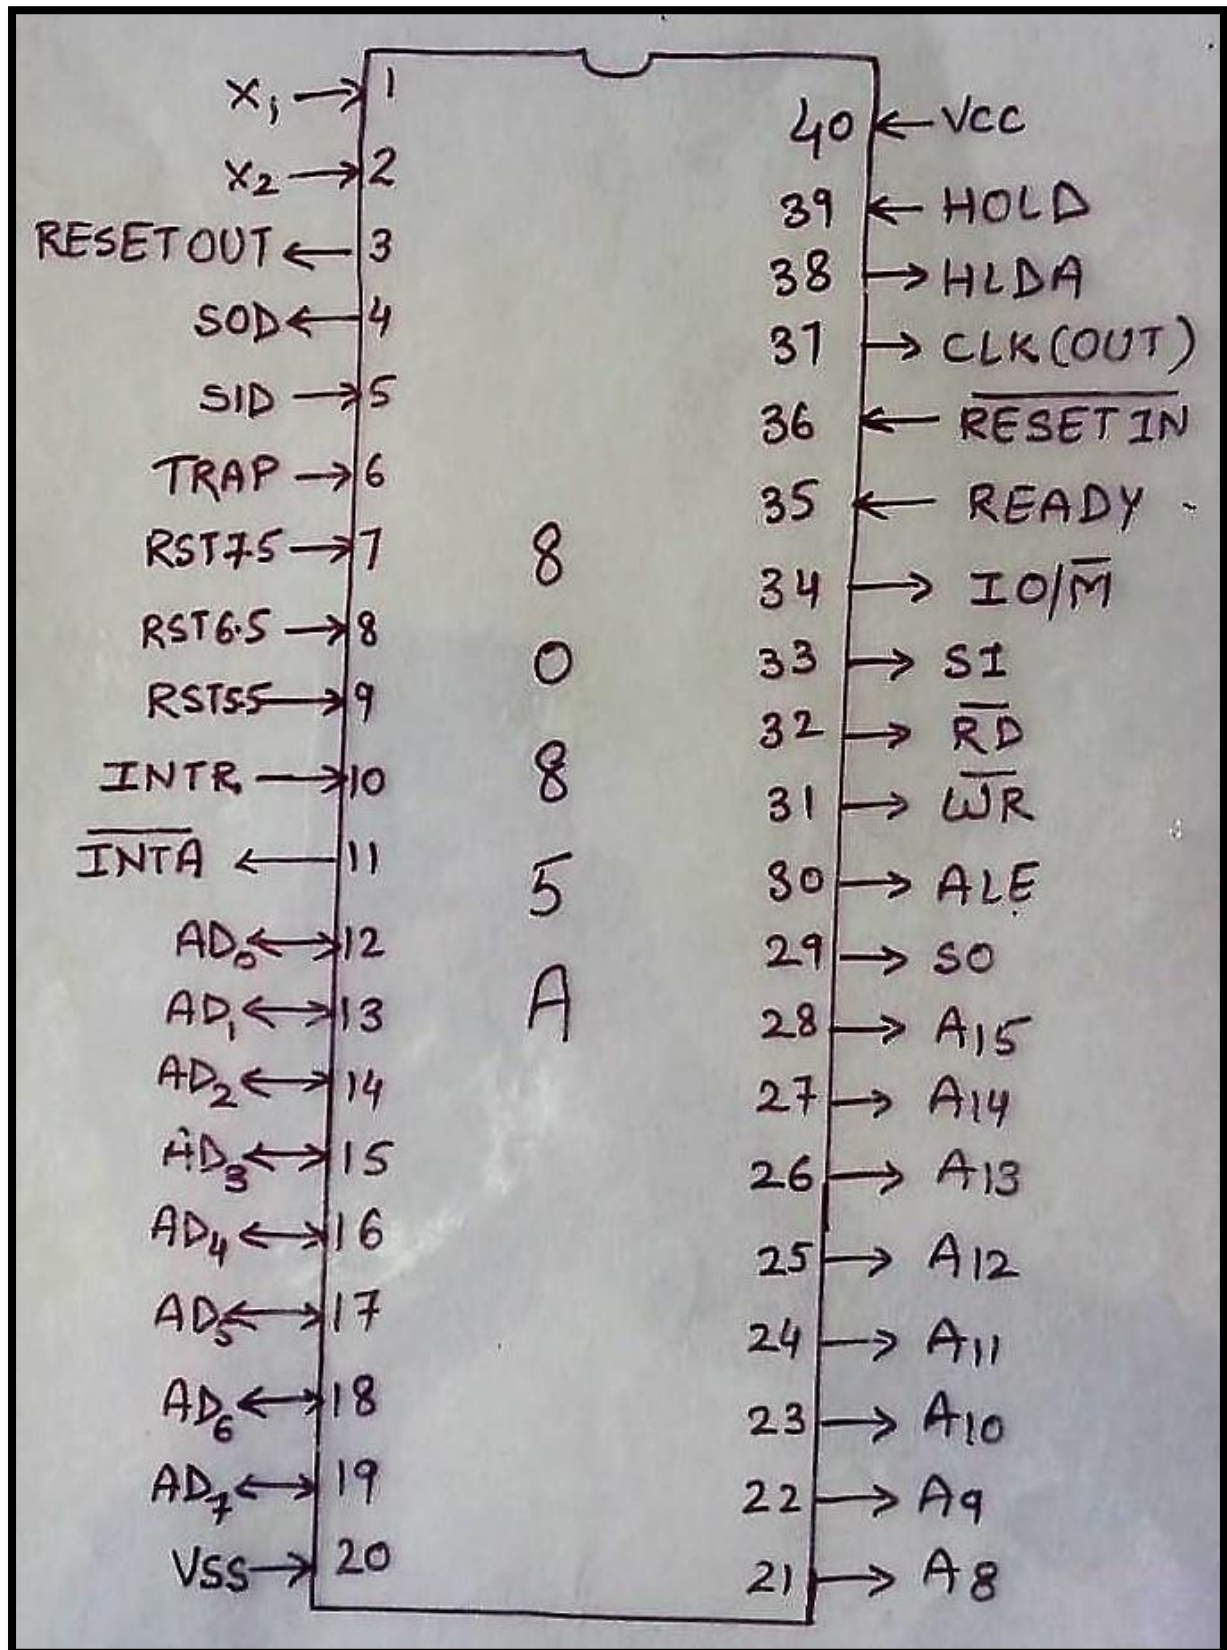 X₁ → 1
X₂ → 2
RESET OUT ← 3
SOD ← 4
SID → 5
TRAP → 6
RST7.5 → 7
RST6.5 → 8
RST5.5 → 9
INTR → 10
I̅N̅T̅A̅ ← 11
AD₀ ↔ 12
AD₁ ↔ 13
AD₂ ↔ 14
AD₃ ↔ 15
AD₄ ↔ 16
AD₅ ↔ 17
AD₆ ↔ 18
AD₇ ↔ 19
VSS → 20
8
0
8
5
A
40 ← VCC
39 ← HOLD
38 → HLDA
37 → CLK(OUT)
36 ← R̅E̅S̅E̅T̅ I̅N̅
35 ← READY
34 → IO/M̅
33 → SI
32 → R̅D̅
31 → W̅R̅
30 → ALE
29 → SO
28 → A15
27 → A14
26 → A13
25 → A12
24 → A11
23 → A10
22 → A9
21 → A8